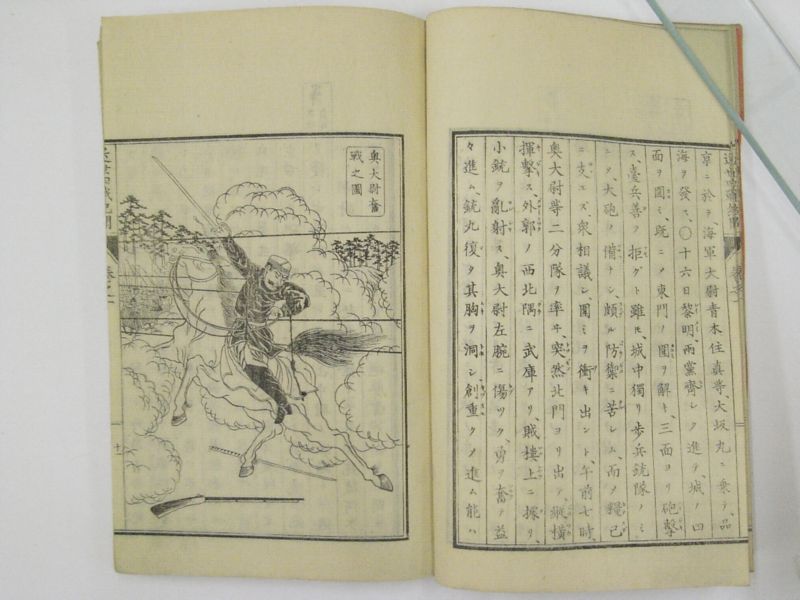 京ニ於ヲ海軍大尉青木住真等、大坂丸ニ乗テ、品
海ヲ發ス、〇十六日黎明、兩黨齊シク進テ、城ノ四
面ヲ圍ミ、既ニシテ東門ノ圍ヲ解キ、三面ヨリ砲撃
ス、臺兵善ク拒グト雖モ、城中獨リ歩兵銃隊ノミ
ニシテ、大砲ノ備ナシ、頗ル防禦ニ苦シム、而ヲ糧已
ニ支エズ、衆相議シ、圍ミヲ衝キ出ント、午前七時、
奥大尉等二分隊ヲ率ヰ、突然北門ヨリ出デ、縱横
揮撃ス、外郭ノ西北隅ニ武庫アリ、賊樓上ニ據リ、
小銃ヲ亂射ス、奥大尉左腕ニ傷ツク、勇ヲ奮テ益
々進ム、銃丸復タ其胸ヲ洞シ、創重クシテ進ム能ハ
奥大尉奮
戰之圖